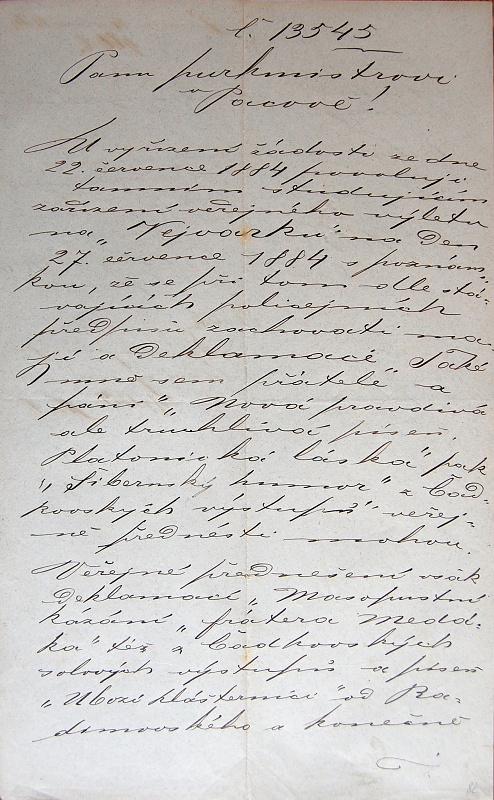 č. 13545
Panu purkmistrovi
v Pacově!
U vyřízení žádosti ze dne
22. července 1884 povoluji
tamním studujícím
zařízení veřejného výletu
na „Tejvarků" na den
27. července 1884 s poznám-
kou, že se při tom dle stá-
vajících policejních
předpisů zachovati ma-
jí a deklamace „Také
mně sem přátelé" a
písní „Nová pravdivá
ale truchlivá píseň,
Platonická láska" pak
„Šibernský humor" z Čad-
kovských výstupů veřej-
ně přednésti mohou.
Veřejné přednešení však
deklamací „Masopustní
kázání „frátera Medá-
ka" též z Čadkovských
solových výstupů a píseň
„Ubozí klášterníci" od Ra-
dimovského a konečně